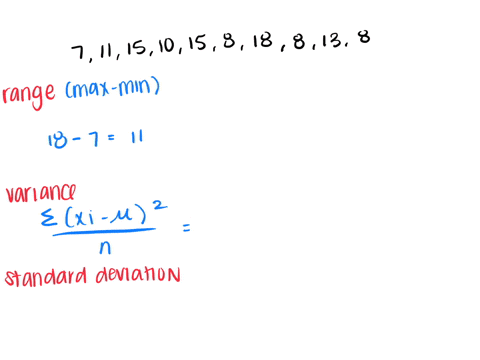 7, 11, 15, 10, 15, 8, 18, 8, 13, 8
range (max-min)
18 - 7 = 11
variance
Σ(xi - μ)² / n =
standard deviation